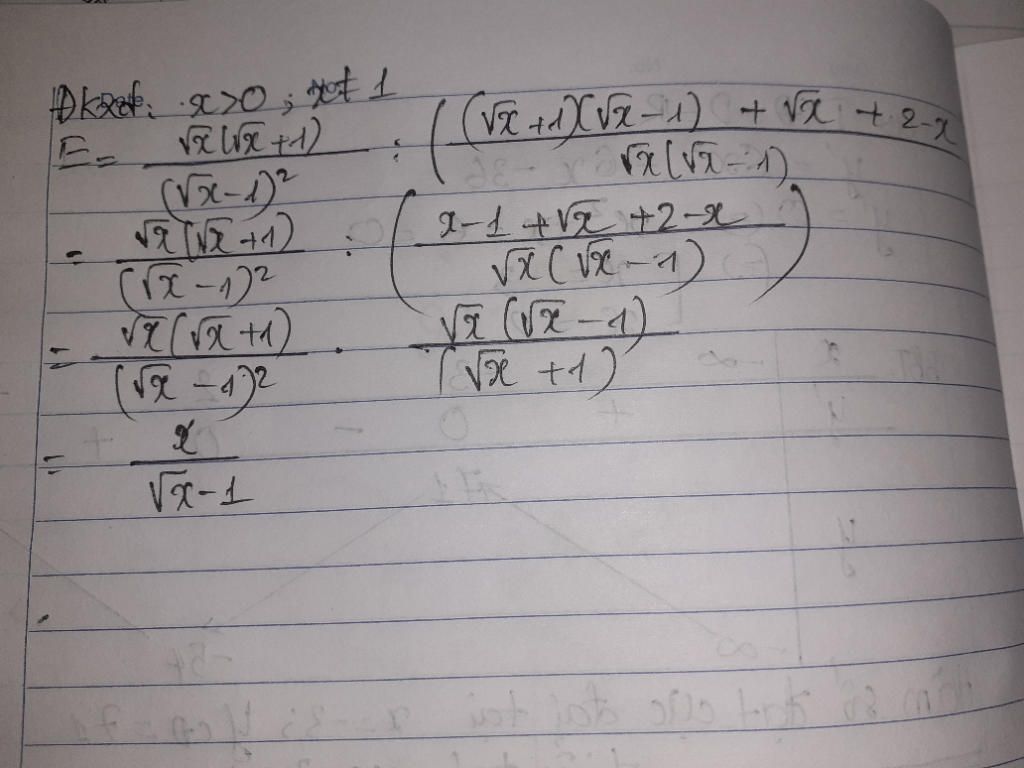 Đkxđ: x>0; x≠1
E = √x(√x+1)/(√x-1)² : ((√x+1)(√x-1) + √x + 2-x)/(√x(√x-1)
= √x(√x+1)/(√x-1)² : ((x-1+√x+2-x)/(√x(√x-1)))
= √x(√x+1)/(√x-1)² . √x(√x-1)/(√x+1)
= x/(√x-1)